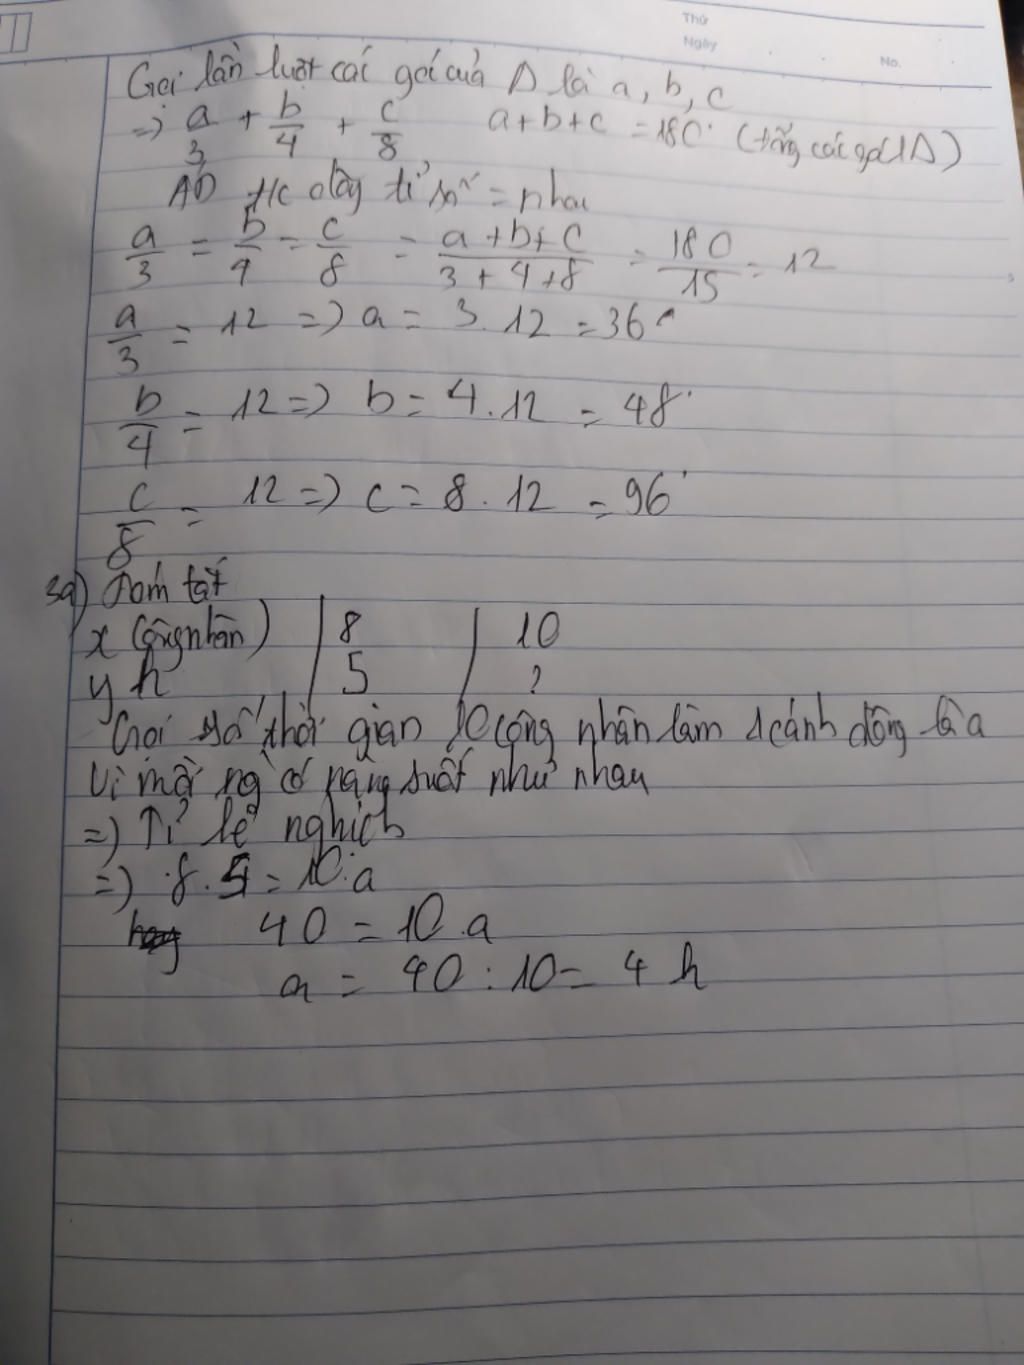 Thứ
Ngày
No.
Gọi lần lượt các góc của Δ là a, b, c
=> a/3 + b/4 + c/8 a+b+c = 180° (tổng các góc 1Δ)
AD t/c dãy tỉ số = nhau
a/3 = b/4 = c/8 = (a+b+c)/(3+4+8) = 180/15 = 12
a/3 = 12 => a = 3.12 = 36°
b/4 = 12 => b = 4.12 = 48°
c/8 = 12 => c = 8.12 = 96°
3a) Tóm tắt
x (công nhân) | 8 | 10
y h | 5 | ?
Gọi số thời gian 10 công nhân làm 1 cánh đồng là a
Vì mỗi ng có năng suất như nhau
=> Tỉ lệ nghịch
=> 8.5 = 10.a
40 = 10.a
a = 40 : 10 = 4 h